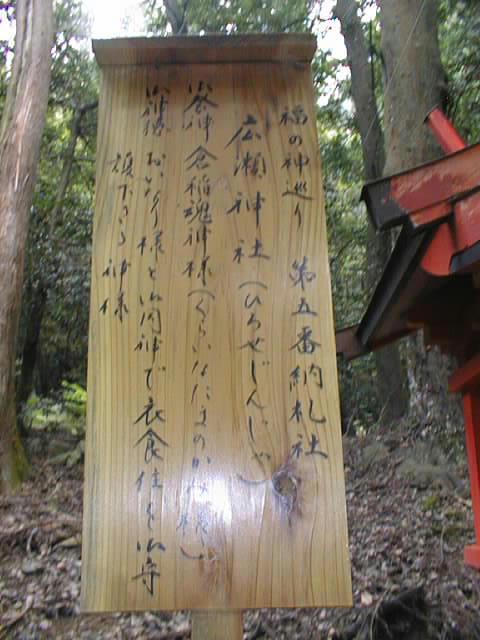 福の神巡り 第五番納札社
広瀬神社(ひろせじんじゃ)
御祭神 倉稲魂神様(くらいなたまのかみ様)
御神徳 おいなり様と御同神で衣食住を御守
護下さる神様